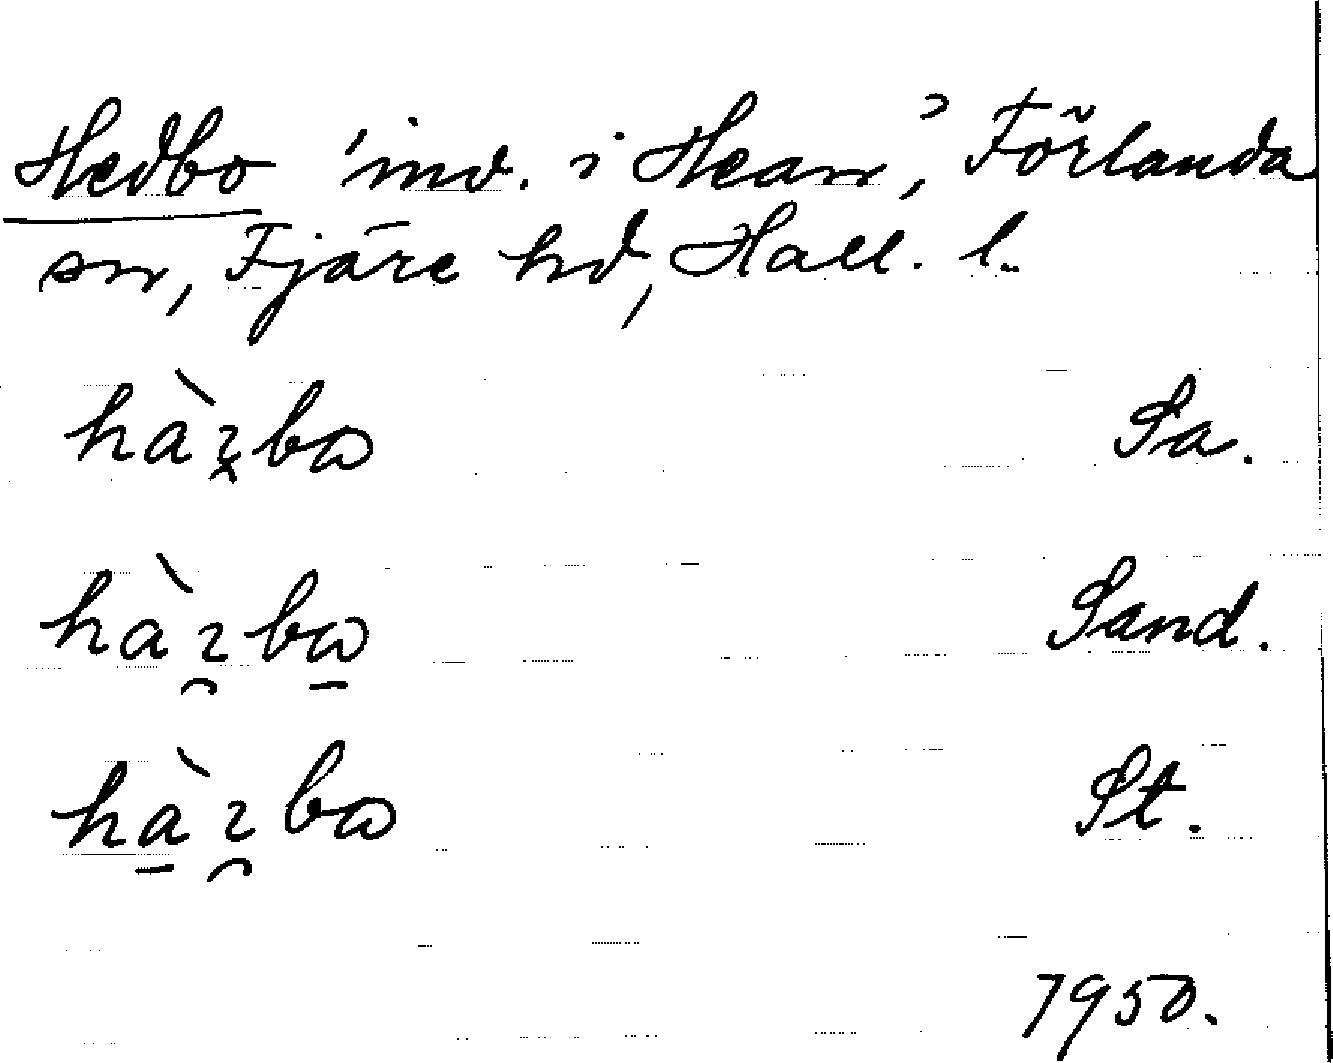 Hedbo 'inv. i Hean', Förlanda
sn, Fjäre hd, Hall. l.
hàꝛbo Sa.
hàꝛbo Sand.
hàꝛbo St.
1950.